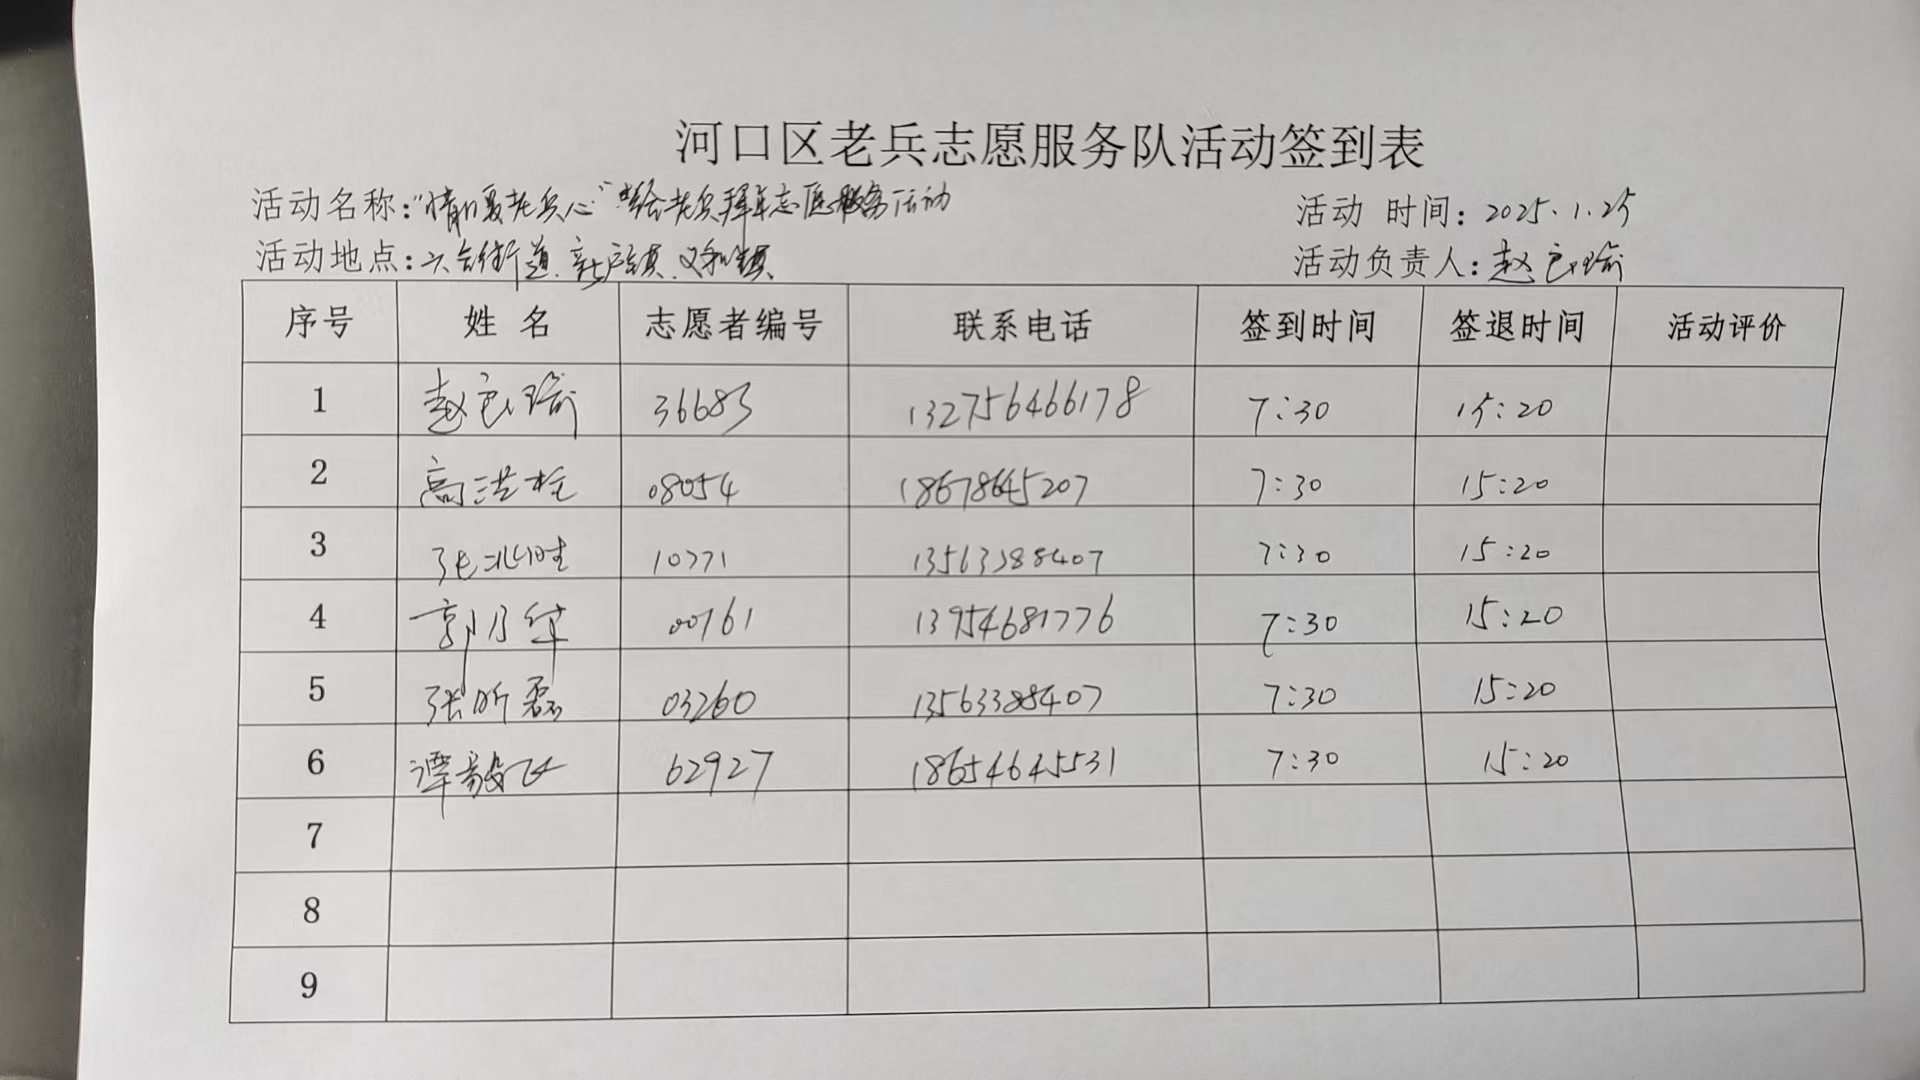 河口区老兵志愿服务队活动签到表
活动名称:“情暖老兵心”给老兵拜年志愿服务活动
活动 时间: 2025.1.25
活动地点:六合街道、新户镇、义和镇
活动负责人:赵良瑜
序号 姓 名 志愿者编号 联系电话 签到时间 签退时间 活动评价
1 赵良瑜 36683 132756466178 7:30 15:20
2 高洪栓 08054 18678645207 7:30 15:20
3 张兆胜 10771 13563388407 7:30 15:20
4 郭乃华 00761 13954681776 7:30 15:20
5 张昕磊 03260 13563388407 7:30 15:20
6 谭毅飞 62927 18654645531 7:30 15:20
7
8
9